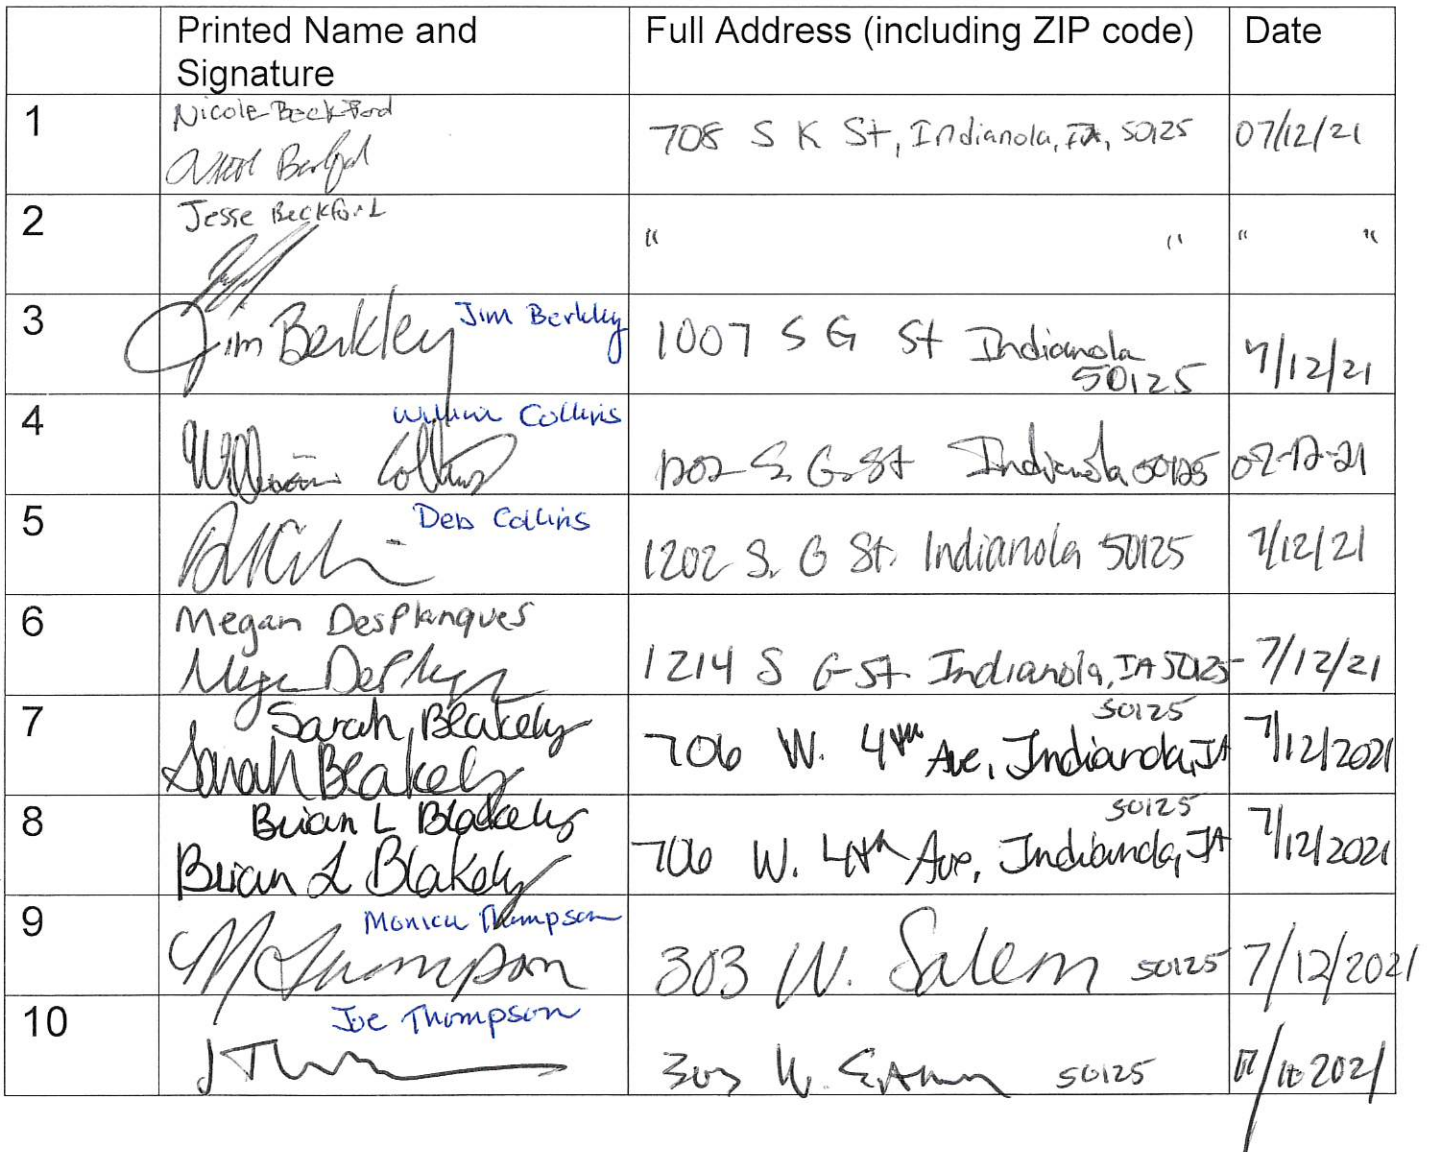 Printed Name and Signature Full Address (including ZIP code) Date
1 Nicole Beckford 708 S K St, Indianola, IA, 50125 07/12/21
2 Jesse Beckford " " " "
3 Jim Berkley Jim Berkley 1007 S G St Indianola 50125 7/12/21
4 William Collins William Collins 1202 S. G St Indianola 50125 07-12-21
5 Deb Collins 1202 S. G St. Indianola 50125 7/12/21
6 Megan DesPlanques 1214 S G St. Indianola, IA 50125 7/12/21
7 Sarah Blakely Sarah Blakely 706 W. 4th Ave, Indianola, IA 50125 7/12/2021
8 Brian L Blakely Brian L Blakely 706 W. 4th Ave, Indianola, IA 50125 7/12/2021
9 Monica Thompson M Thompson 303 W. Salem 50125 7/12/2021
10 Joe Thompson 303 W. 50125 2021